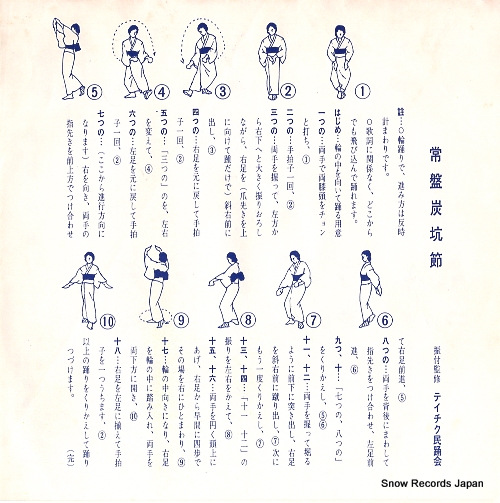 常盤炭坑節
振付監修　テイチク民踊会
註…〇輪踊りで、進み方は反時
計まわりです。
〇歌詞に関係なく、どこから
でも飛び込んで踊れます。
はじめ…輪の中を向いて踊る用意
一つの…両手で両膝頭をチョン
と打ち、①
二つの…手拍子一回、②
三つの…両手を握って、左方か
ら右下へと大きく振りおろし
ながら、右足を（爪先きを上
に向けて踵だけで）斜右前に
出し、③
四つの…右足を元に戻して手拍
子一回、②
五つの…「三つの」のを、左右
を変えて、④
六つの…左足を元に戻して手拍
子一回、②
七つの…（ここから進行方向に
なります）右を向き、両手の
指先きを前上方でつけ合わせ
て右足前進、⑤
八つの…両手を背後にまわして
指先きをつけ合わせ、左足前
進、⑥
九つ、十…「七つの、八つの」
をくりかえし、⑤⑥
十一、十二…両手を握って掘る
ように前下に突き出し、右足
を斜右前に蹴り出し、⑦次に
もう一度くりかえし、⑦
十三、十四…「十一　十二」の
振りを左右をかえて、⑧
十五、十六…両手を円く頭上に
あげ、右足から早間に四歩で
その場を右にひとまわり、⑨
十七…輪の中向きになり、右足
を輪の中に踏み入れ、両手を
両下方に開き、⑩
十八…右足を左足に揃えて手拍
子を一つうちます、②
以上の踊りをくりかえして踊り
つづけます。
（完）
①
②
③
④
⑤
⑥
⑦
⑧
⑨
⑩
Snow Records Japan